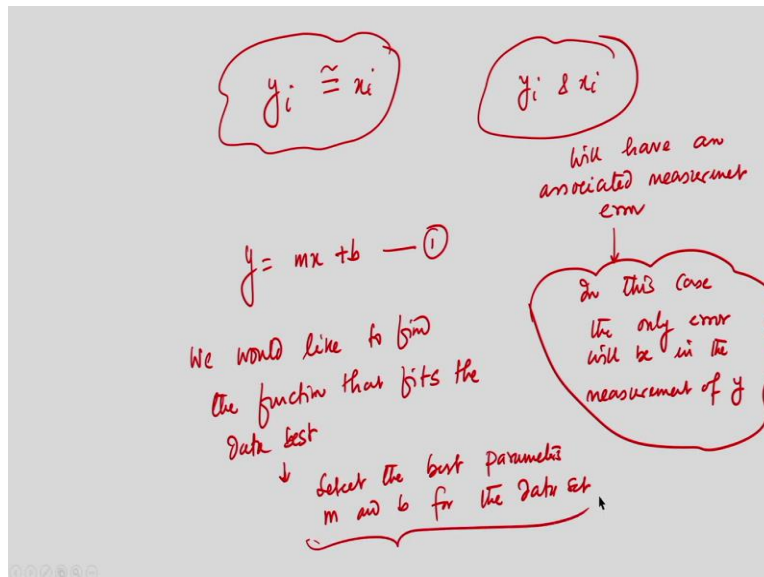 y_i ≅ x_i
y_i & x_i
will have an
associated measurment
error
y = mx + b — ①
In this case
the only error
will be in the
measurement of y
We would like to find
the function that fits the
data best
Select the best parameters
m and b for the data set